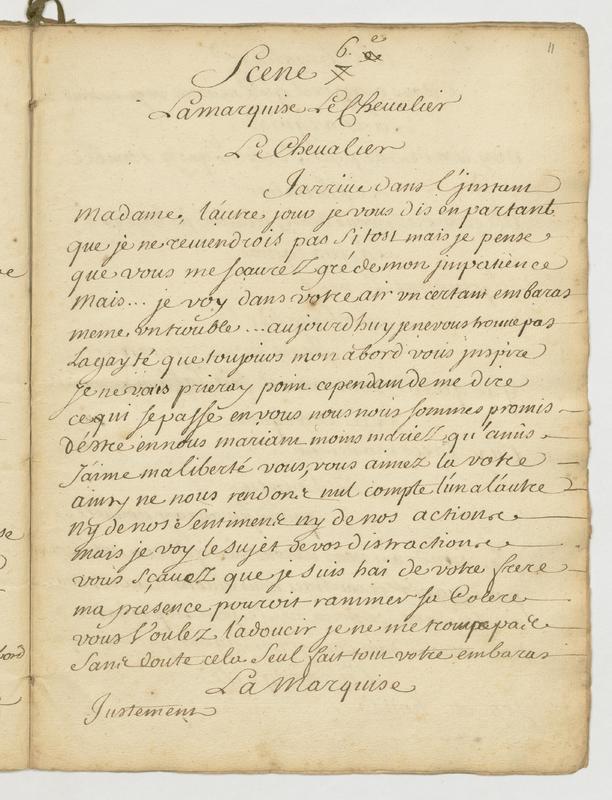 11
Scene 6.e
La marquise Le Chevalier
Le Chevalier
J'arrive dans l'jnstant
Madame, l'autre jour je vous dis en partant
que je ne reviendrois pas sitost mais je pense
que vous me sçaurez gré de mon jmpatience
Mais... je voy dans votre air un certain embaras
meme un trouble... aujourd'huy je ne vous trouve pas
La gayté que toujours mon abord vous jnspire
Je ne vous prieray point cependant de me dire
ce qui se passe en vous nous nous sommes promis
d'estre en nous mariant moins mariez qu'amis
J'aime ma liberté vous, vous aimez la votre
ainsy ne nous rendons nul compte l'un a l'autre
ny de nos sentimens ny de nos actions
mais je voy le sujet de vos distractions
vous sçavez que je suis hai de votre frere
ma presence pourroit ranimer sa Colere
vous voulez l'adoucir je ne me trompe pas
sans doute cela seul fait tout votre embaras
La Marquise
Justement